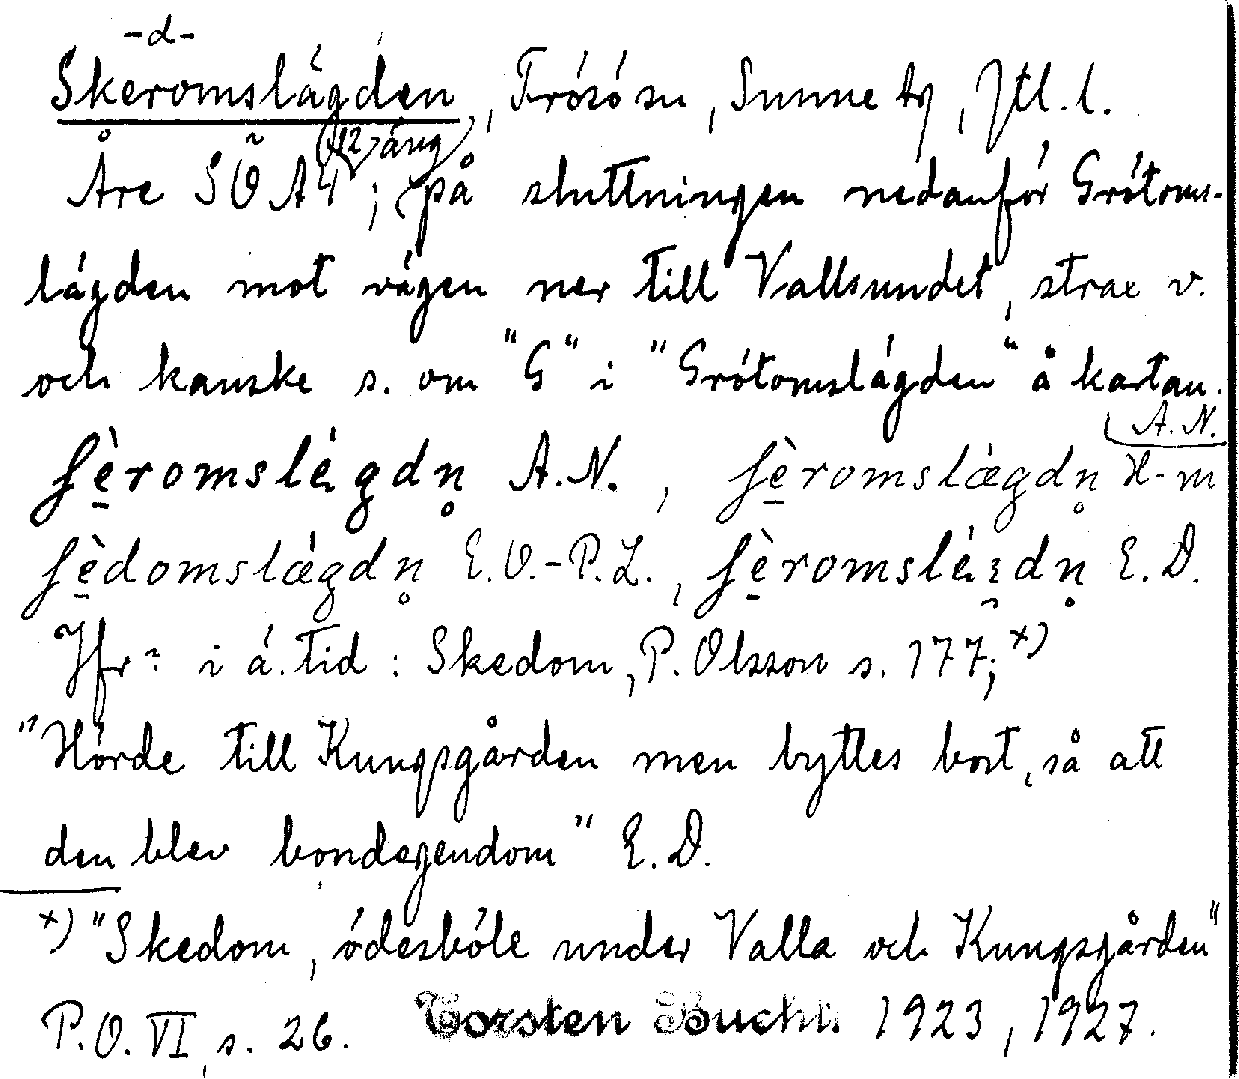 -d-
Skeromslägden, Frösö sn, Sunne tg, Jtl. l.
(12) äng
Åre SÖ A4; på sluttningen nedanför Grötoms-
lägden mot vägen ner till Vallsundet, strax v.
och kanske s. om "G" i "Grötomslägden" å kartan.
A. N.
ʃè̱romslégdn̥ A.N., ʃè̱romslǽgdn̥ H-m
ʃè̱domslǽgdn̥ E.O.-P.L., ʃè̱romslé.ʒdn̥ E. D.
Jfr? i ä. tid: Skedom, P. Olsson s. 177; x)
"Hörde till Kungsgården men byttes bort, så att
den blev bondegendom" E. D.
x) "Skedom, ödesböle under Valla och Kungsgården"
P. O. VI, s. 26. Torsten Bucht. 1923, 1927.